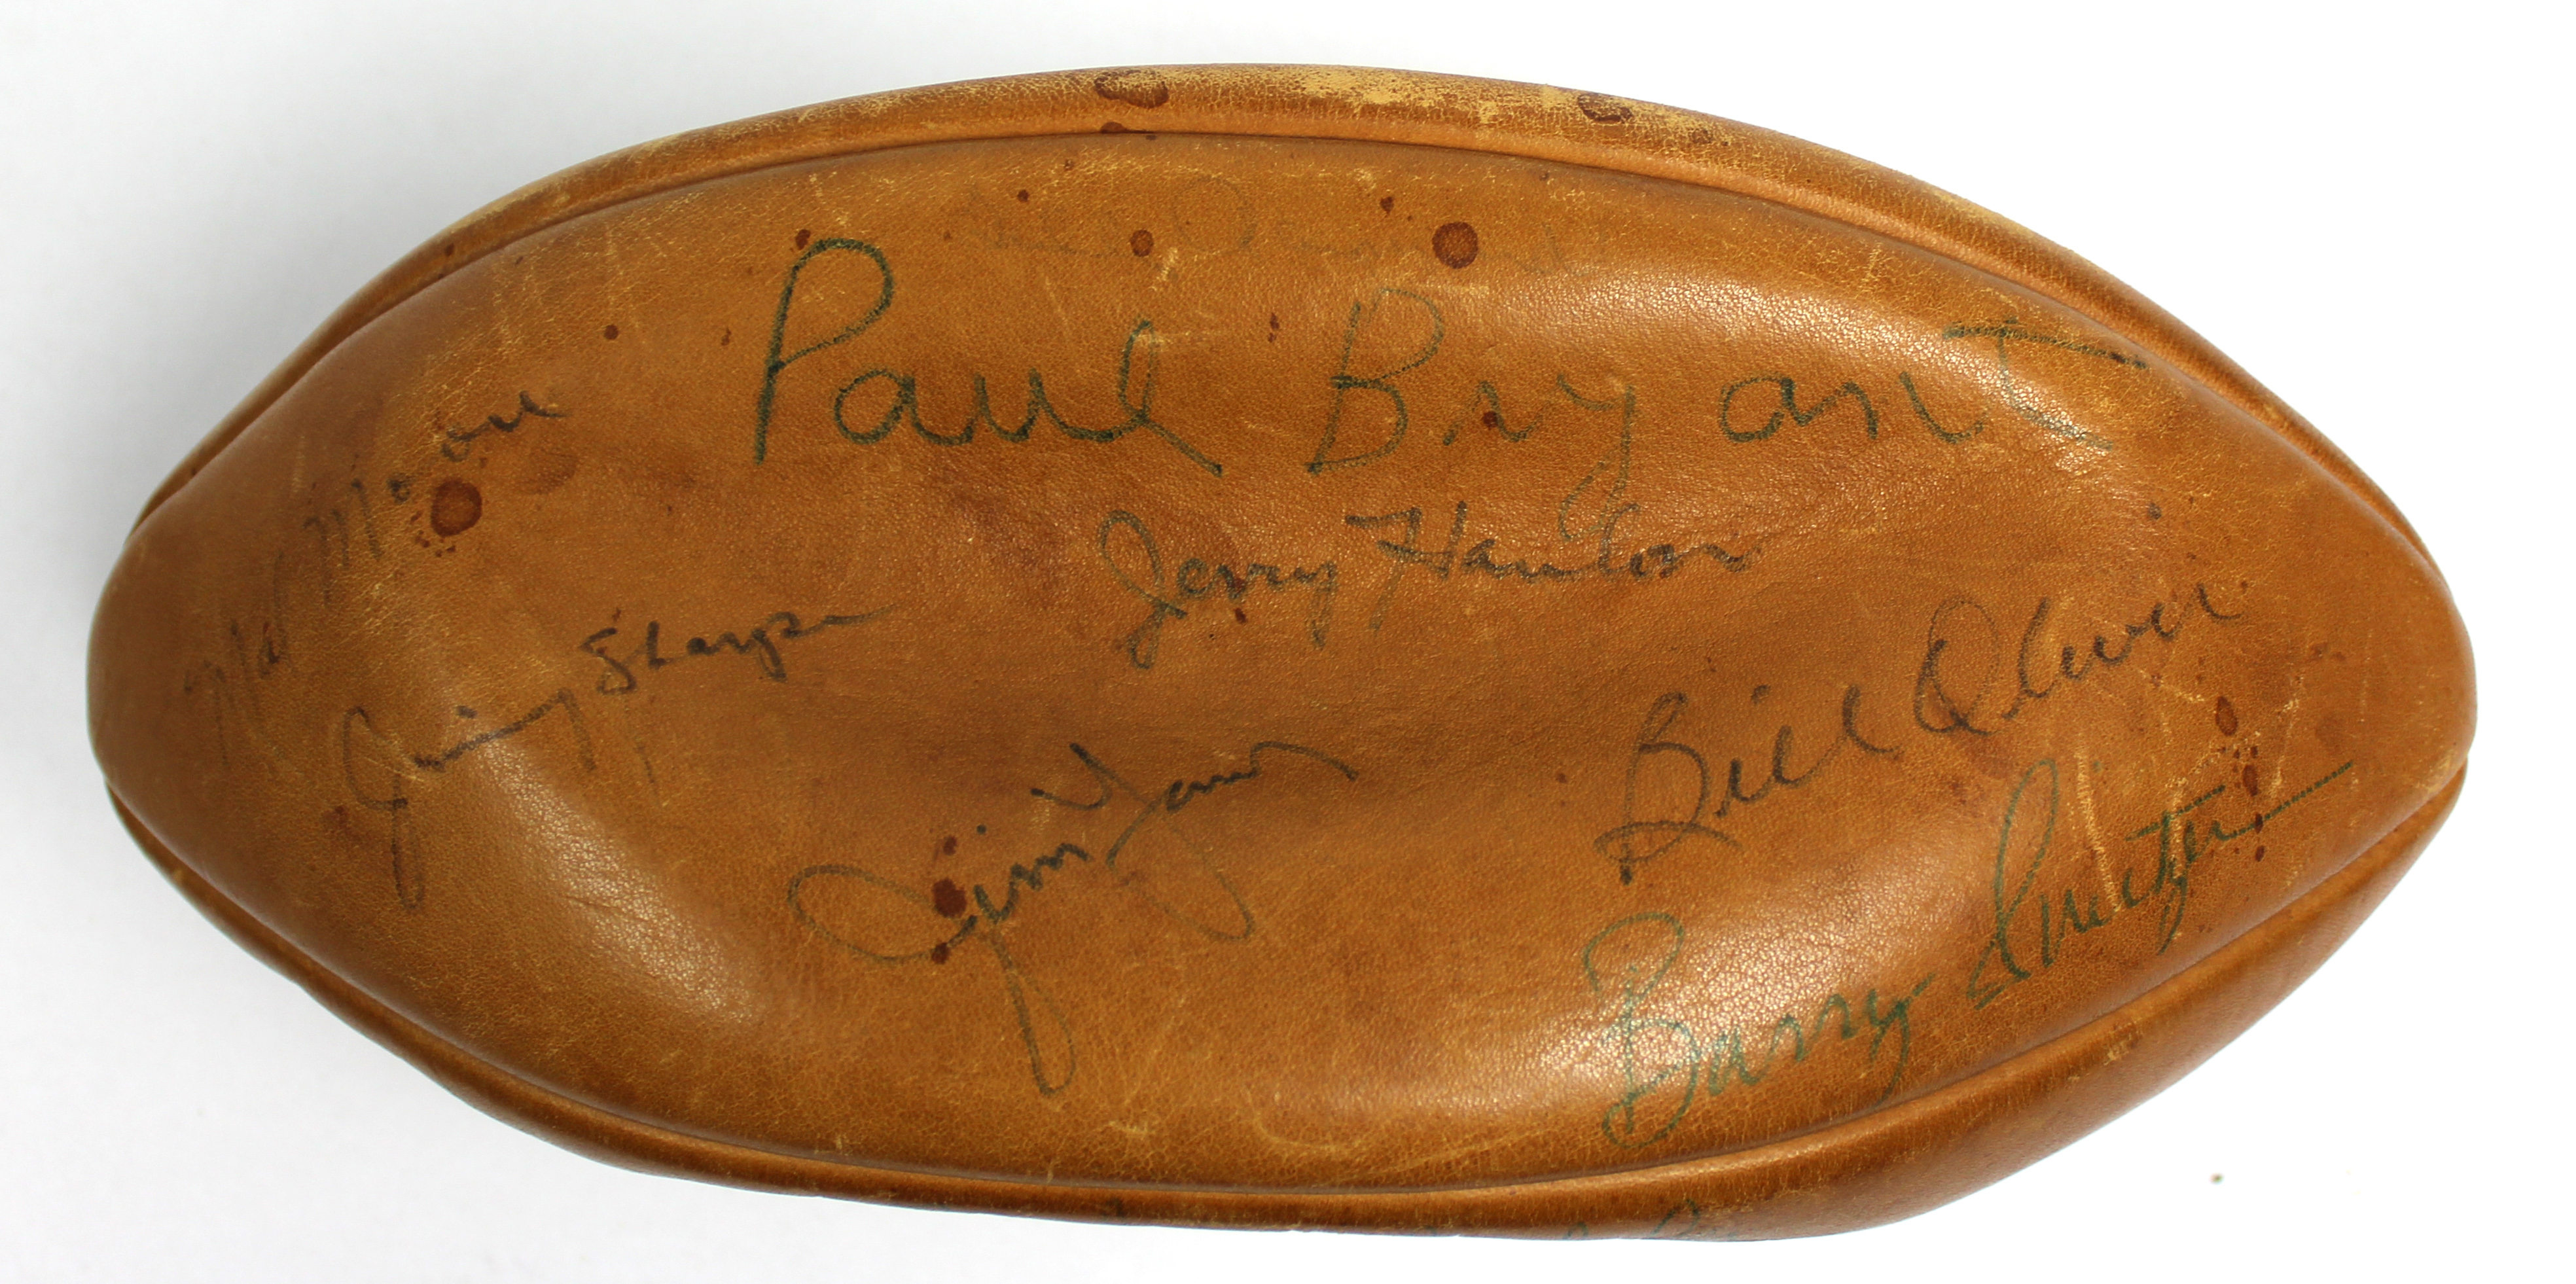 Paul Bryant
Mal Moore
Jerry Hanlon
Jimmy Sharpe
Bill Oliver
Jim
Barry